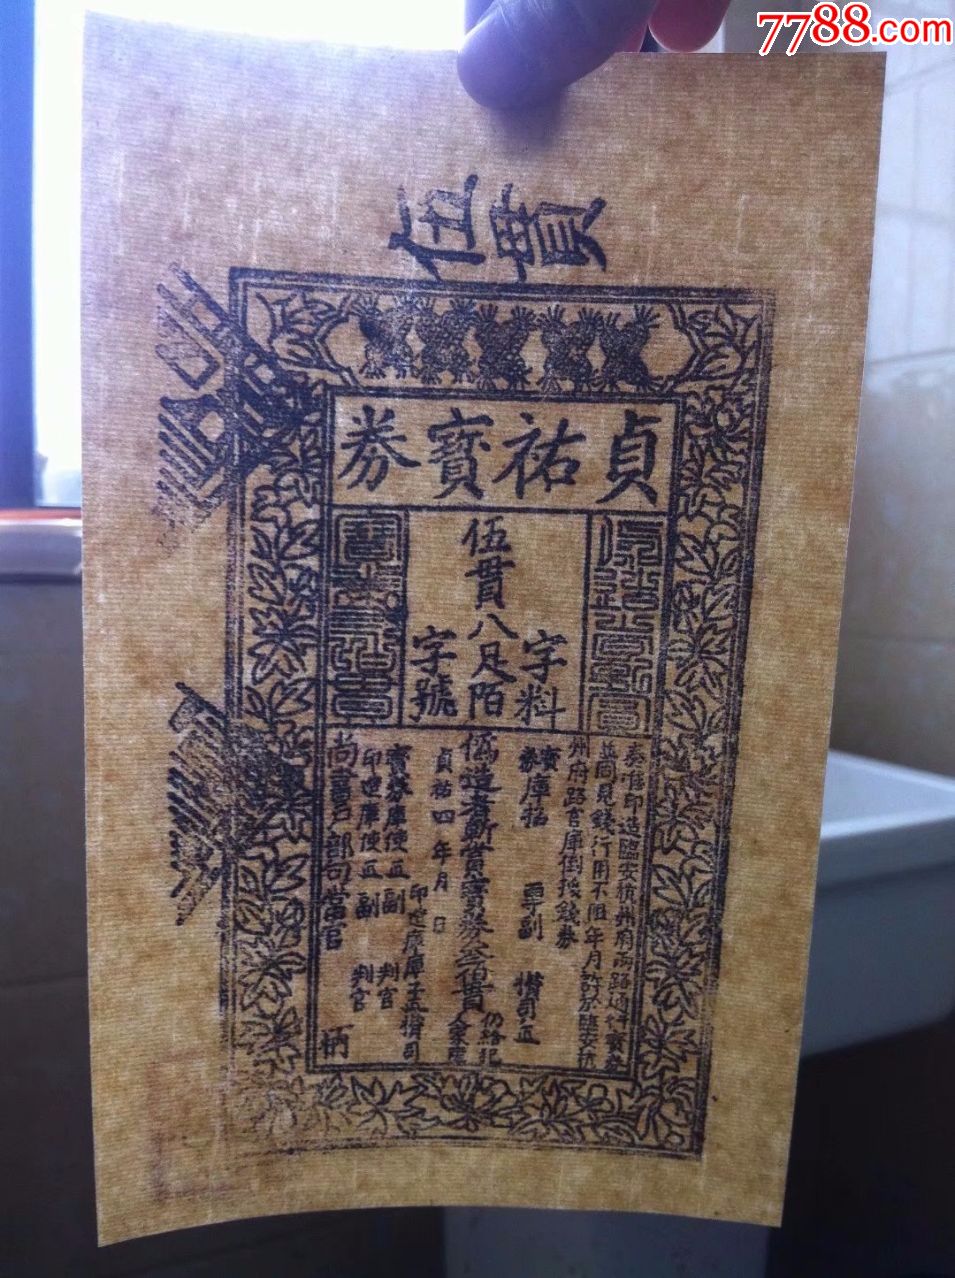 7788.com
伍貫
貞祐寶券
伍貫八足陌
字料
字號
奏准印造臨安杭州府兩路通行寶券
並同見錢行用不限年月許於臨安杭
州府路官庫倒換錢券
寶券庫
攢司
偽造者斬賞寶券叁佰貫
仍給犯人家産
貞祐四年 月 日
印造庫庫子 攢司
寶券庫使 副 判官
印造庫使 副 判官
尚書戶部句當官